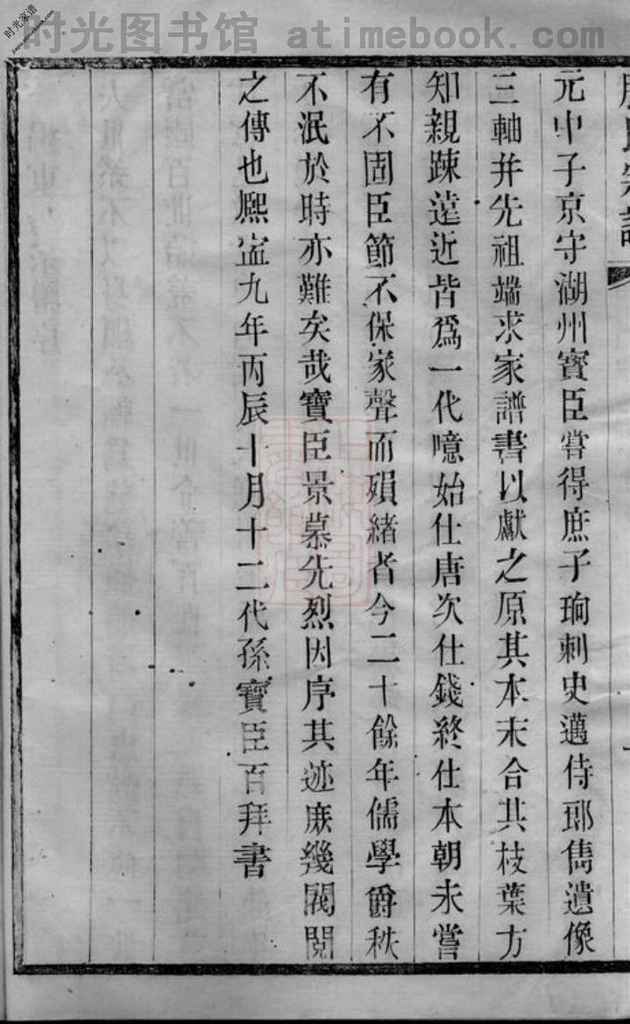 时光图书馆 atimebook.com
时光家谱
元中子京守湖州寳臣嘗得庶子珣刺史邁侍郎雋遺像
三軸并先祖端求家譜書以獻之原其本末合其枝葉方
知親疎遠近皆爲一代噫始仕唐次仕錢終仕本朝未嘗
有不固臣節不保家聲而殞緒者今二十餘年儒學爵秩
不泯於時亦難矣哉寳臣景慕先烈因序其迹庶幾閥閱
之傳也熈寍九年丙辰十月十二代孫寳臣百拜書